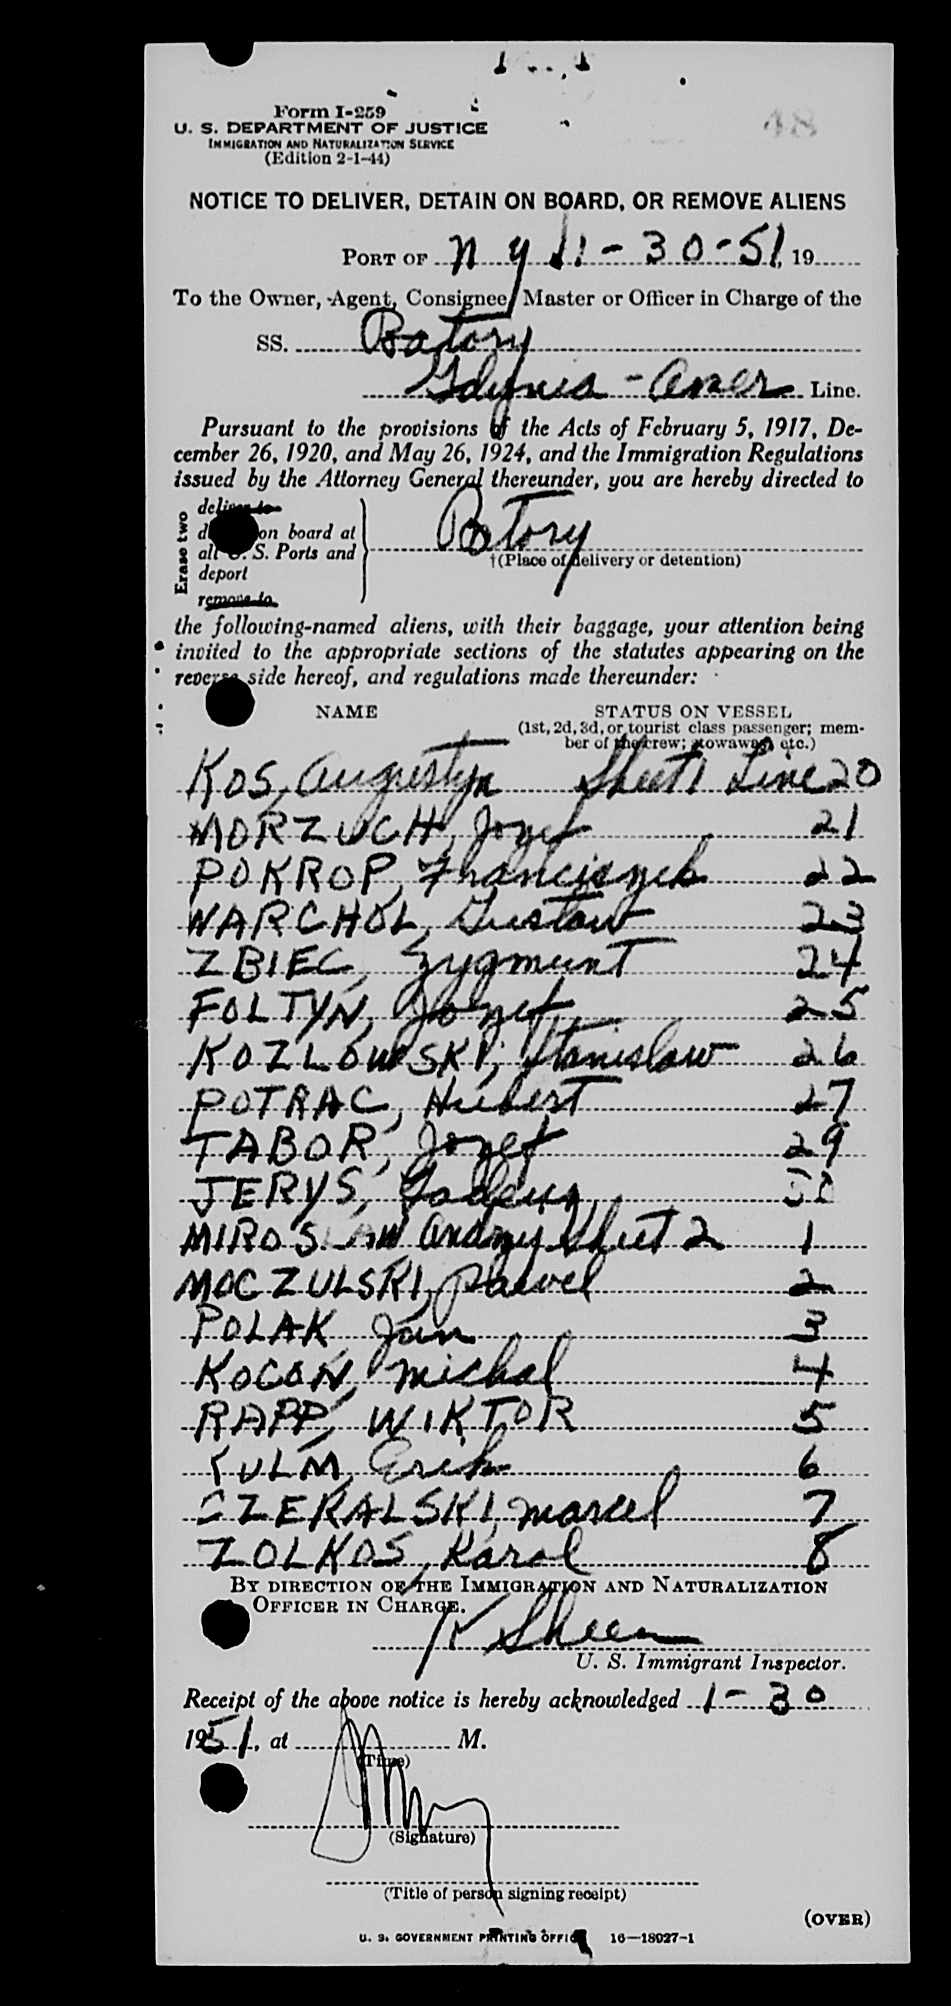 48
Form I-259
U. S. DEPARTMENT OF JUSTICE
IMMIGRATION AND NATURALIZATION SERVICE
(Edition 2-1-44)
NOTICE TO DELIVER, DETAIN ON BOARD, OR REMOVE ALIENS
PORT OF N Y 1-30-51, 19
To the Owner, Agent, Consignee, Master or Officer in Charge of the
SS. Batory
Gdynia - Amer Line.
Pursuant to the provisions of the Acts of February 5, 1917, De-
cember 26, 1920, and May 26, 1924, and the Immigration Regulations
issued by the Attorney General thereunder, you are hereby directed to
Erase two
deliver to
on board at Batory
all U. S. Ports and
†(Place of delivery or detention)
deport
remove to
the following-named aliens, with their baggage, your attention being
invited to the appropriate sections of the statutes appearing on the
reverse side hereof, and regulations made thereunder:
NAME STATUS ON VESSEL
(1st, 2d, 3d, or tourist class passenger; mem-
ber of the crew; stowaway, etc.)
KOS, Augustyn Sheet 1 Line 20
MORZUCH, Jozef 21
POKROP, Franciszek 22
WARCHOL, Gustaw 23
ZBIEC, Zygmunt 24
FOLTYN, Jozef 25
KOZLOWSKI, Stanislaw 26
POTRAC, Hubert 27
TABOR, Jozef 29
JERYS, Tadeusz
MIROSLAW Andrzej Sheet 2 1
MOCZULSKI, Pawel 2
POLAK Jan 3
KOCON, Michal 4
RAPP, WIKTOR 5
KULM, Erik 6
CZERALSKI, Marcel 7
ZOLKOS, Karol 8
BY DIRECTION OF THE IMMIGRATION AND NATURALIZATION
OFFICER IN CHARGE.
K Sheen
U. S. Immigrant Inspector.
Receipt of the above notice is hereby acknowledged 1-30
1951, at M.
(Time)
(Signature)
(Title of person signing receipt)
(OVER)
U. S. GOVERNMENT PRINTING OFFICE 16—18027-1